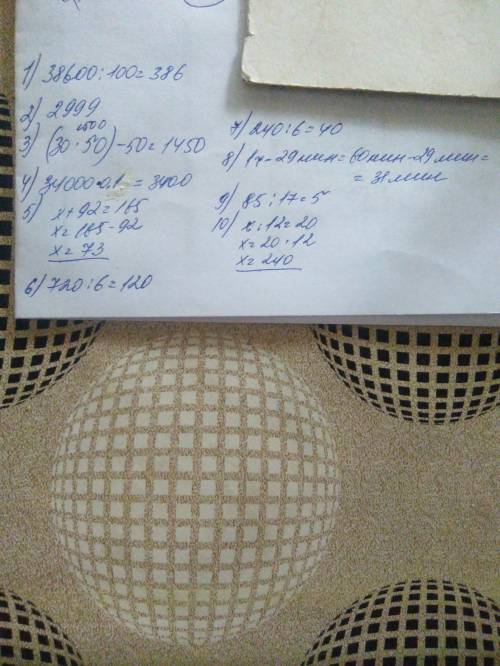 1) 38600:100=386
2) 2999
1500
3) (30·50)-50=1450
4) 34000·0.1=3400
5) x+92=165
x=165-92
x=73
6) 720:6=120
7) 240:6=40
8) 1ч-29мин=60мин-29мин=
=31мин
9) 85:17=5
10) x:12=20
x=20·12
x=240